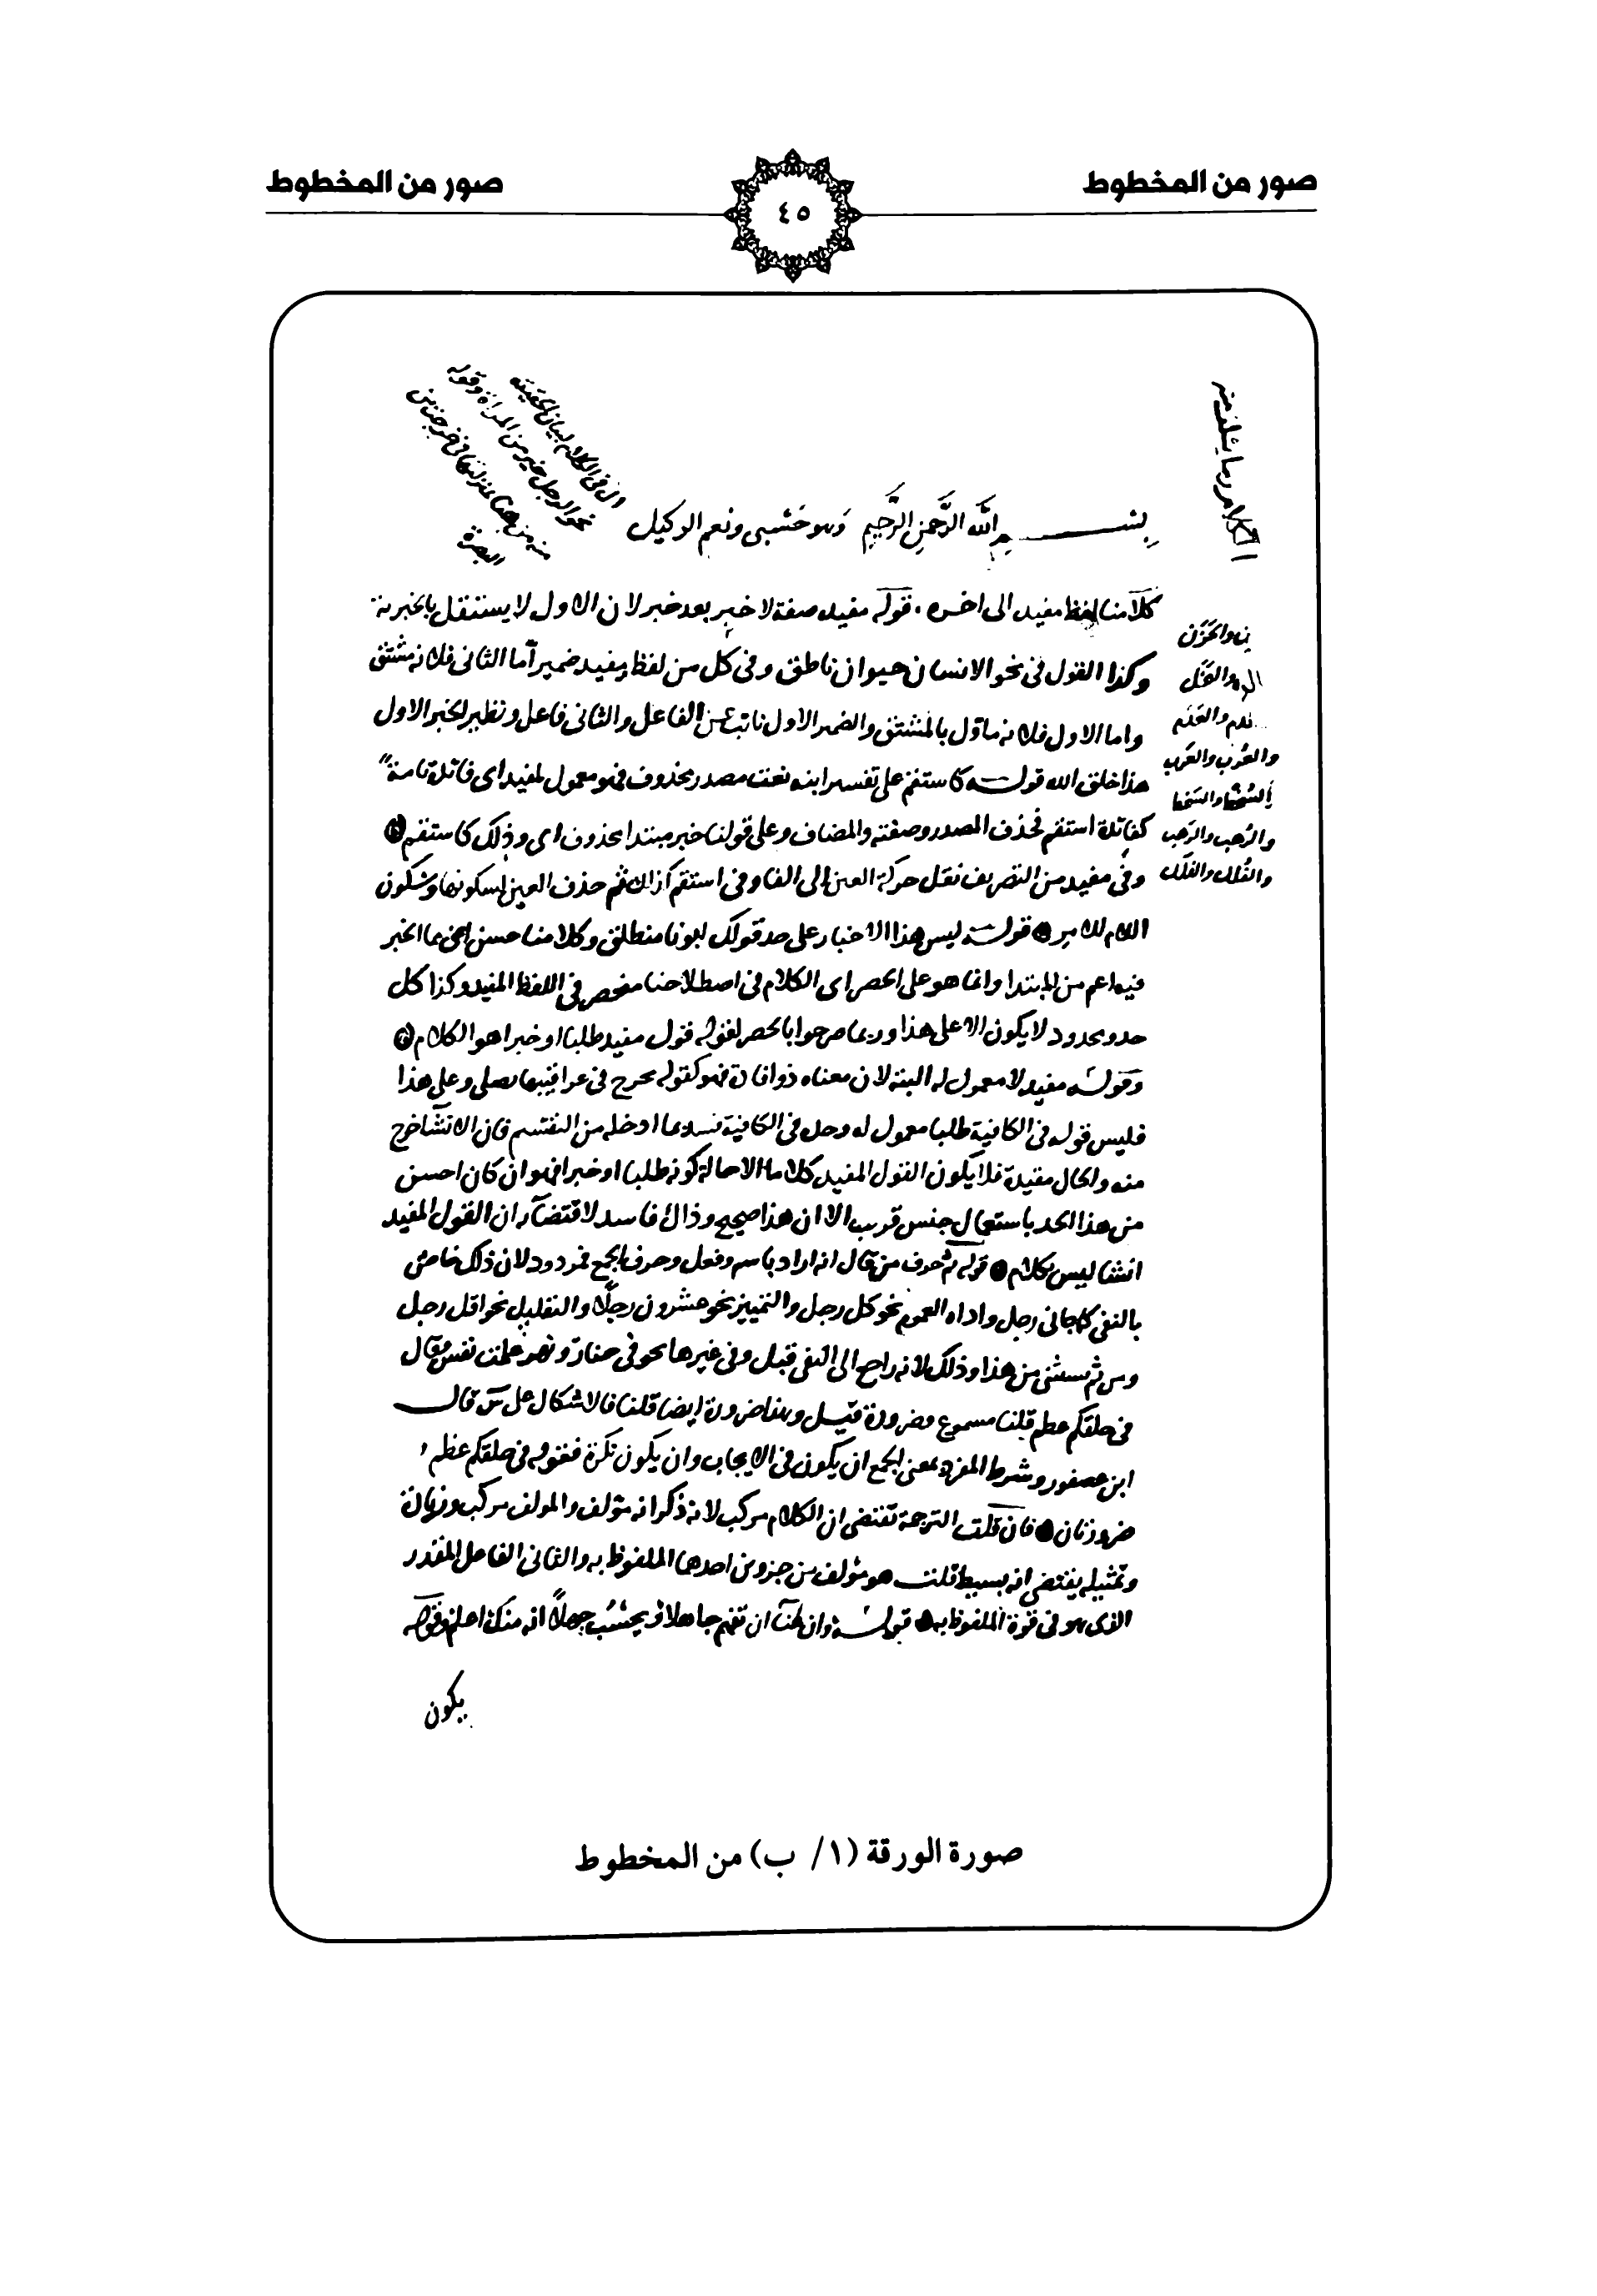 صور من المخطوط
٤٥
صور من المخطوط
بسم الله الرَّحمنِ الرَّحِيمِ وَهو حَسْبى ونعم الوكيل
كلامنا لفظ مفيد الى اخره . قوله مفيد صفة لا خبر بعد خبر لان الاول لا يستقل بالخبرية
وكذا القول فى نحو الانسان حيوان ناطق وفى كل من لفظ ومفيد ضمير أما الثانى فلانه مشتق
واما الاول فلانه ماول بالمشتق والضمير الاول نائب عن الفاعل والثانى فاعل ونظير الخبر الاول
هذا خلق الله قوله كاستقم على تفسير ابنه نعت مصدر محذوف فهو معمول لمفيد اى فائدة تامة
كفائدة استقم فحذف المصدر وصفته والمضاف وعلى قولنا خبر مبتدا محذوف اى وذلك كاستقم
وفى مفيد من التصريف نقل حركة العين الى الفا وفى استقم كذلك ثم حذف العين لسكونها وسكون
اللام للامر قوله ليس هذا الاخبار على حد قولك ابونا منطلق وكلامنا حسن اعنى مما الخبر
فيه اعم من المبتدا وانما هو على الحصر اى الكلام فى اصطلاحنا منحصر فى اللفظ المفيد وكذا كل
حد ومحدود لا يكون الا على هذا وربما صرحوا بالحصر لقوله قول مفيد طلبا او خبرا هو الكلام
وقوله مفيد لا معمول له البتة لان معناه ذو افادة فهو كقوله يجرح فى عراقيبها نصلى وعلى هذا
فليس قوله فى الكافية طلبا معمول له وحد فى الكافية ما ادخله من التقسيم فان الانشا خرج
منه والحال مقيدة فلا يكون القول المفيد كلاما الا حالة كونه طلبا او خبرا فهو ان كان احسن
من هذا الحد باستعمال جنس قريب الا ان هذا صحيح وذاك فاسد لاقتضآئه ان القول المفيد
انشا ليس بكلام قوله ثم حرف من قال انه اراد باسم وفعل وحرف الجمع فمردود لان ذلك خاص
بالنفى كما جانى رجل واداه العموم نحو كل رجل والتمييز نحو عشرون رجلًا والتقليل نحو اقل رجل
ومن ثم يستثنى من هذا وذلك لانه راجع الى النفى قيل وفى غيرها نحو فى جنات ونهر علمت نفس وقال
فى حلقكم عظم قلنا مسموع وضرورة قيل وهذا ضرورة ايضا قلنا فالاشكال على س قال
ابن عصفور وشرط المفرد بمعنى الجمع ان يكون فى الايجاب وان يكون نكرة فقوله فى حلقكم عظم
ضرورتان فان قلت الترجمة تقتضى ان الكلام مركب لانه ذكر انه مؤلف والمولف مركب وزيادة
وتمثيله يقتضى انه بسيط قلت هو مؤلف من جزوين احدهما الملفوظ به والثانى الفاعل المقدر
الذى هو فى قوة الملفوظ به قوله وان عنآ ان تفهم جاهلا فيحسب جهلًا انه منك اعلم وقوله
يكون
ال فى الكلام لبيان الحقيقة
نحو الرجل خير من المراة
البصرة
الكلام وما يتالف منه
والحَزَن
والعَدَم
والعُرْب والعَرَب
السُخْط والسَخَط
والرُهب والرَهب
صورة الورقة (١/ ب) من المخطوط